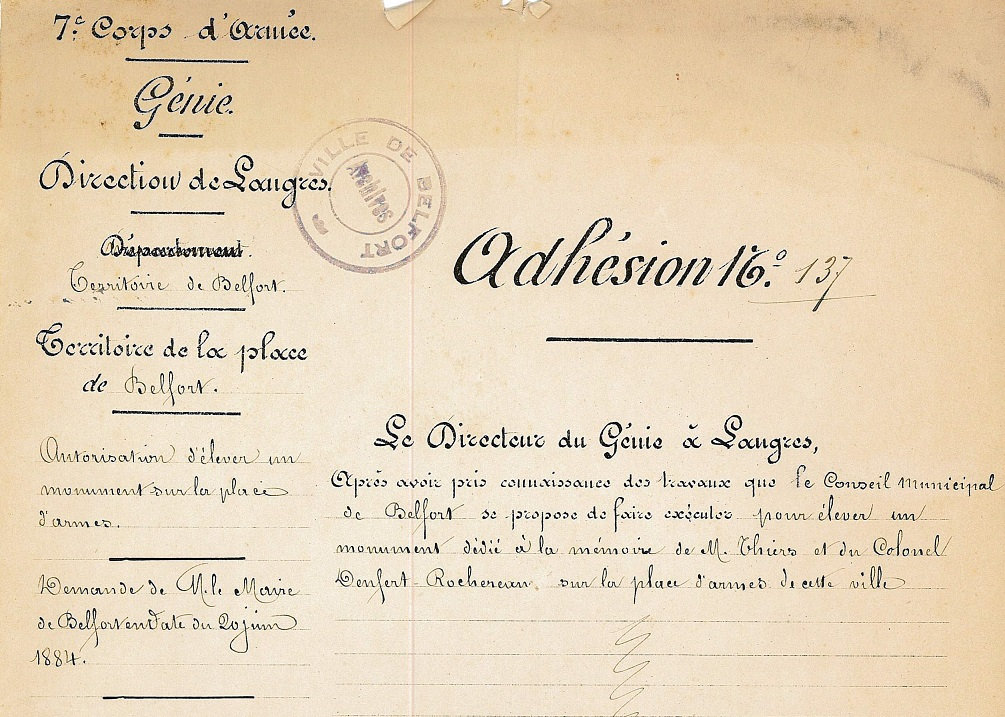 7e Corps d'Armée.
Génie.
Direction de Langres.
Département.
Territoire de Belfort.
Territoire de la place
de Belfort.
Autorisation d'élever un
monument sur la place
d'armes.
Demande de M. le Maire
de Belfort en date du 20 juin
1884.
VILLE DE BELFORT
ARCHIVES
Adhésion No. 137
Le Directeur du Génie à Langres,
Après avoir pris connaissance des travaux que le Conseil Municipal
de Belfort se propose de faire exécuter pour élever un
monument dédié à la mémoire de M. Thiers et du Colonel
Denfert-Rochereau, sur la place d'armes de cette ville